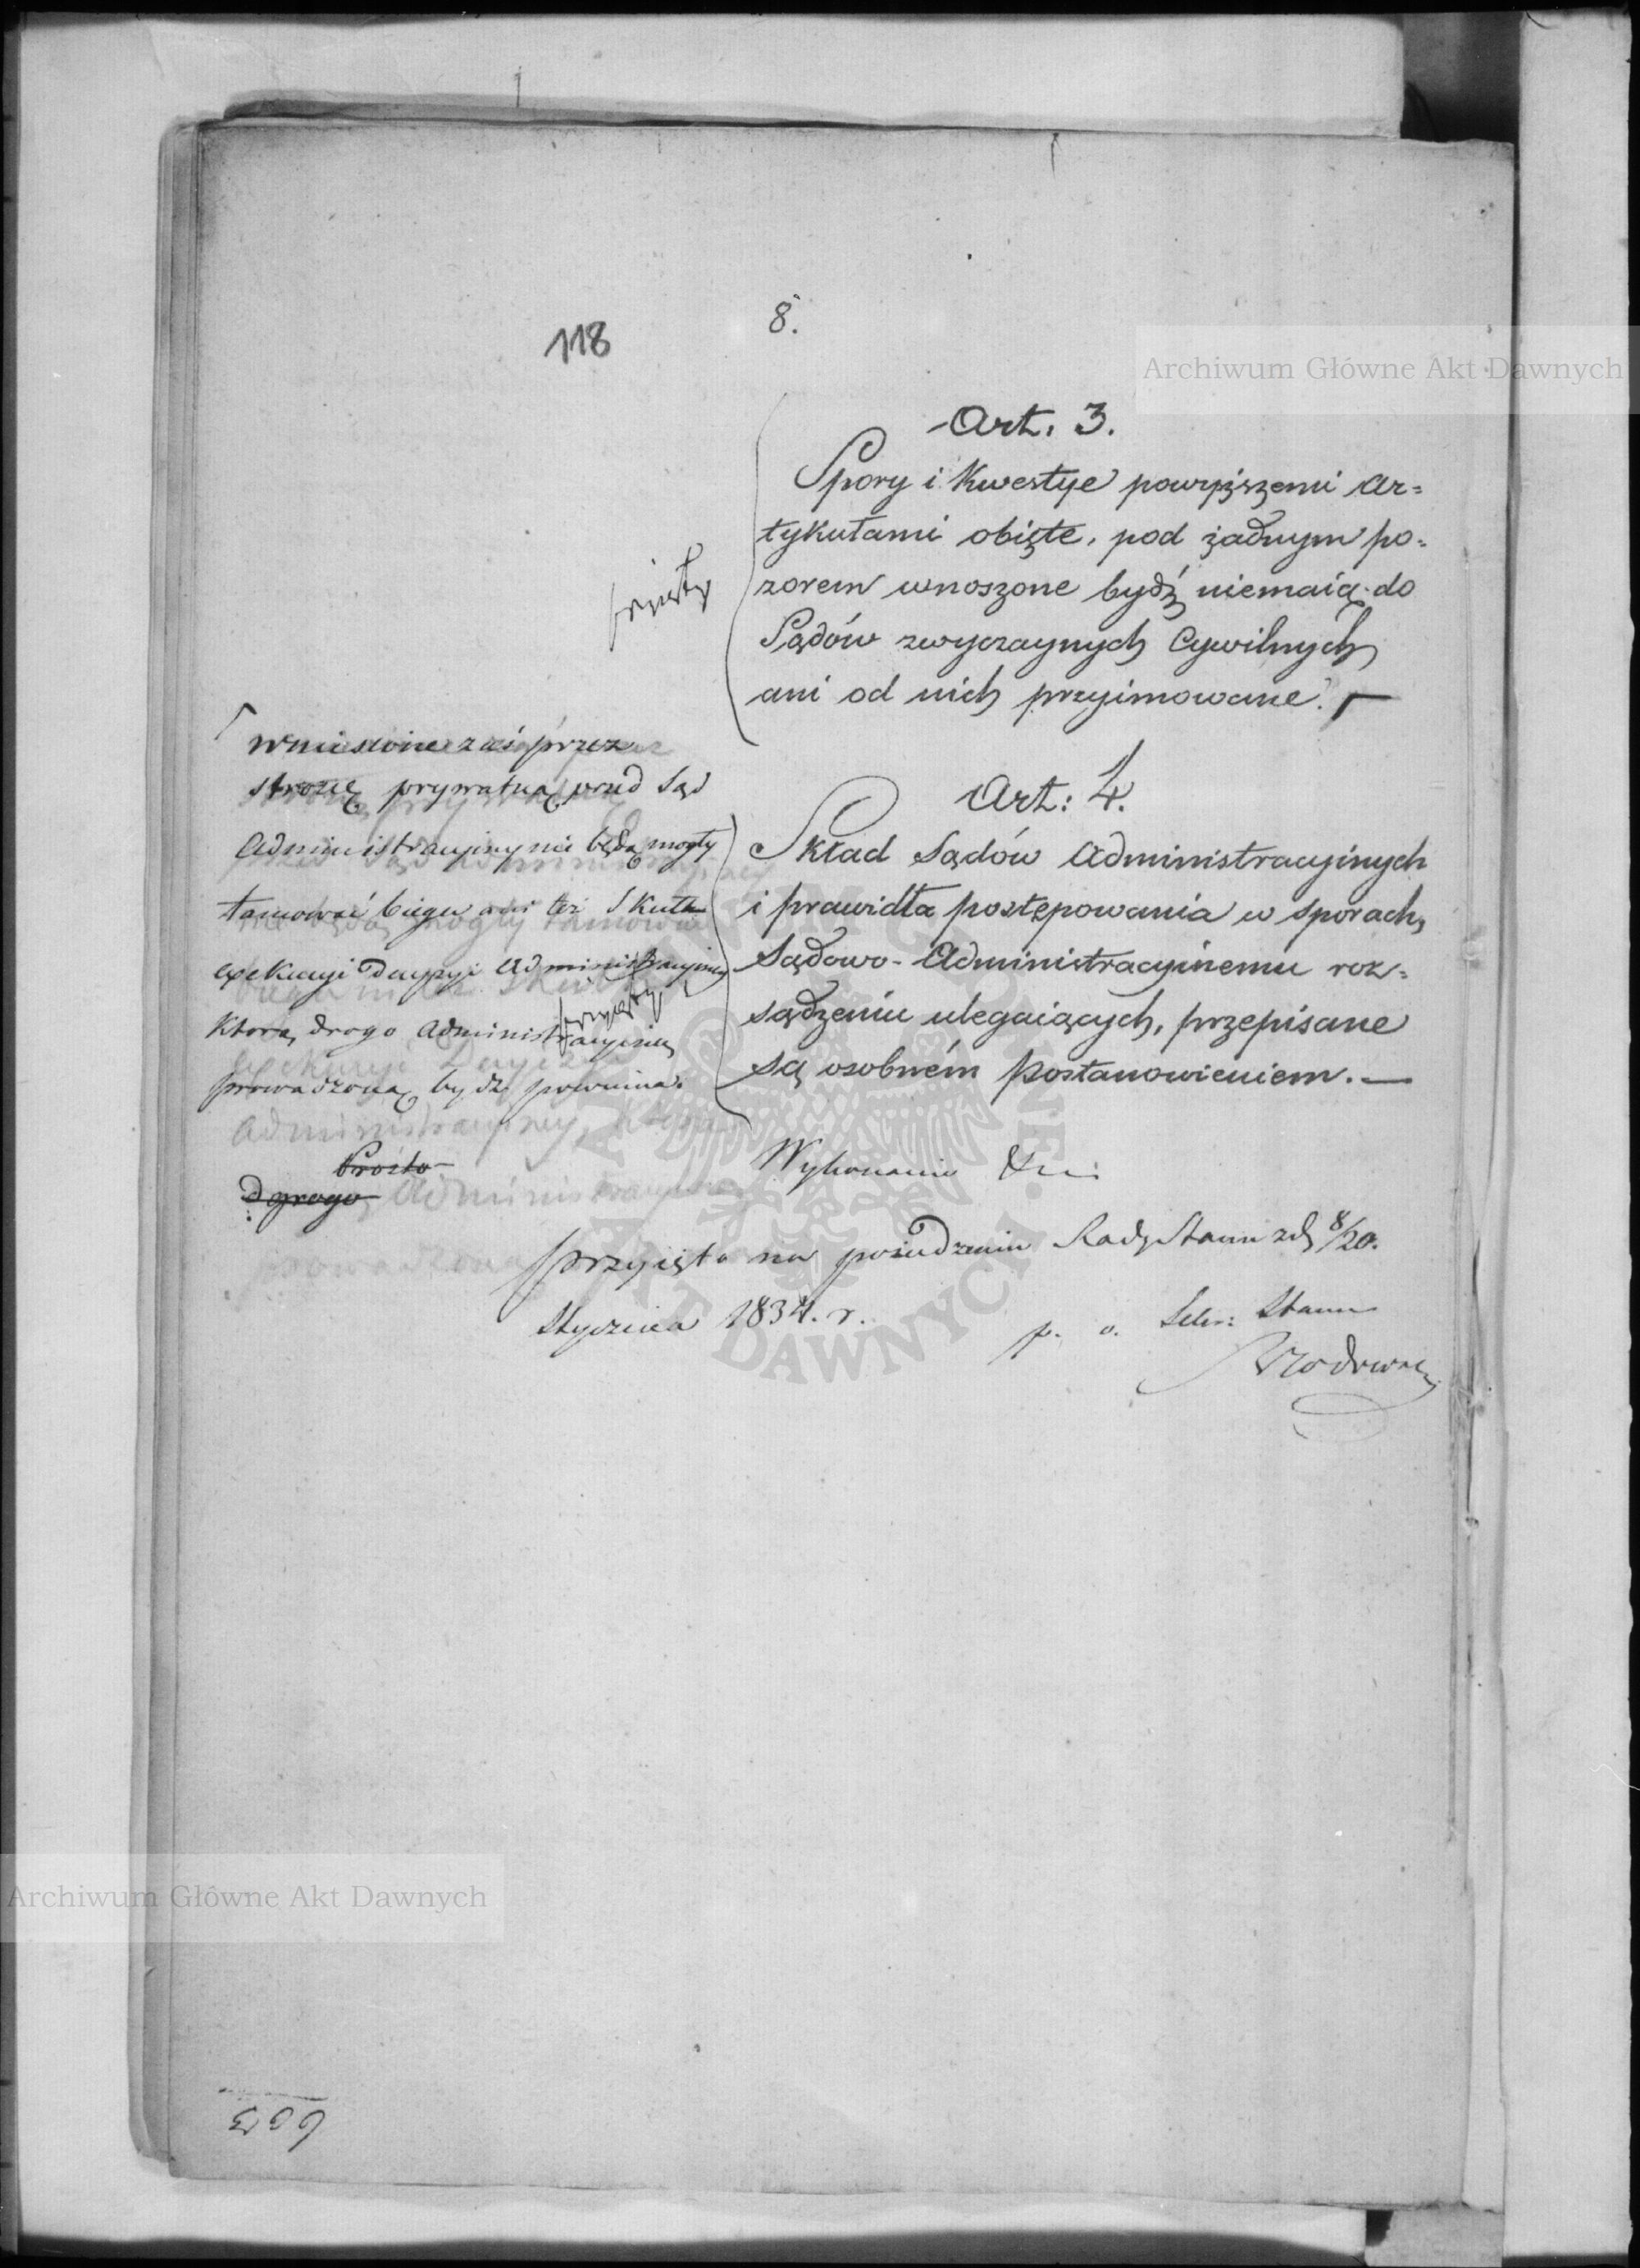 118
8.
Archiwum Główne Akt Dawnych
Art. 3.
Spory i Kwestye powyższemi Ar=
tykułami obięte, pod żadnym po=
zorem wnoszone bydź niemaią do
Sądów zwyczaynych Cywilnych
ani od nich przyimowane. Γ
przyięty
Γ wniesione zaś przez
stronę prywatną przed Sąd
Administracyiny nie będą mogły
tamować biegu ani też Skutku
exekucyi Decyzyi Administracyiney
która drogą Administracyiną
prowadzoną bydź powinna.
przyięty
Prosto
drogą Administracyiną
Art: 4.
Skład Sądów Administracyinych
i prawidła postępowania w sporach,
Sądowo-Administracyinemu roz=
sądzeniu ulegaiących, przepisane
są osobném postanowieniem. —
Wykonanie
przyięto na posiedzeniu Rady Stanu zd. 8/20.
Stycznia 1834. r.
p. o. Sekr: Stanu
ARCHIWUM GŁÓWNE AKT DAWNYCH
Archiwum Główne Akt Dawnych